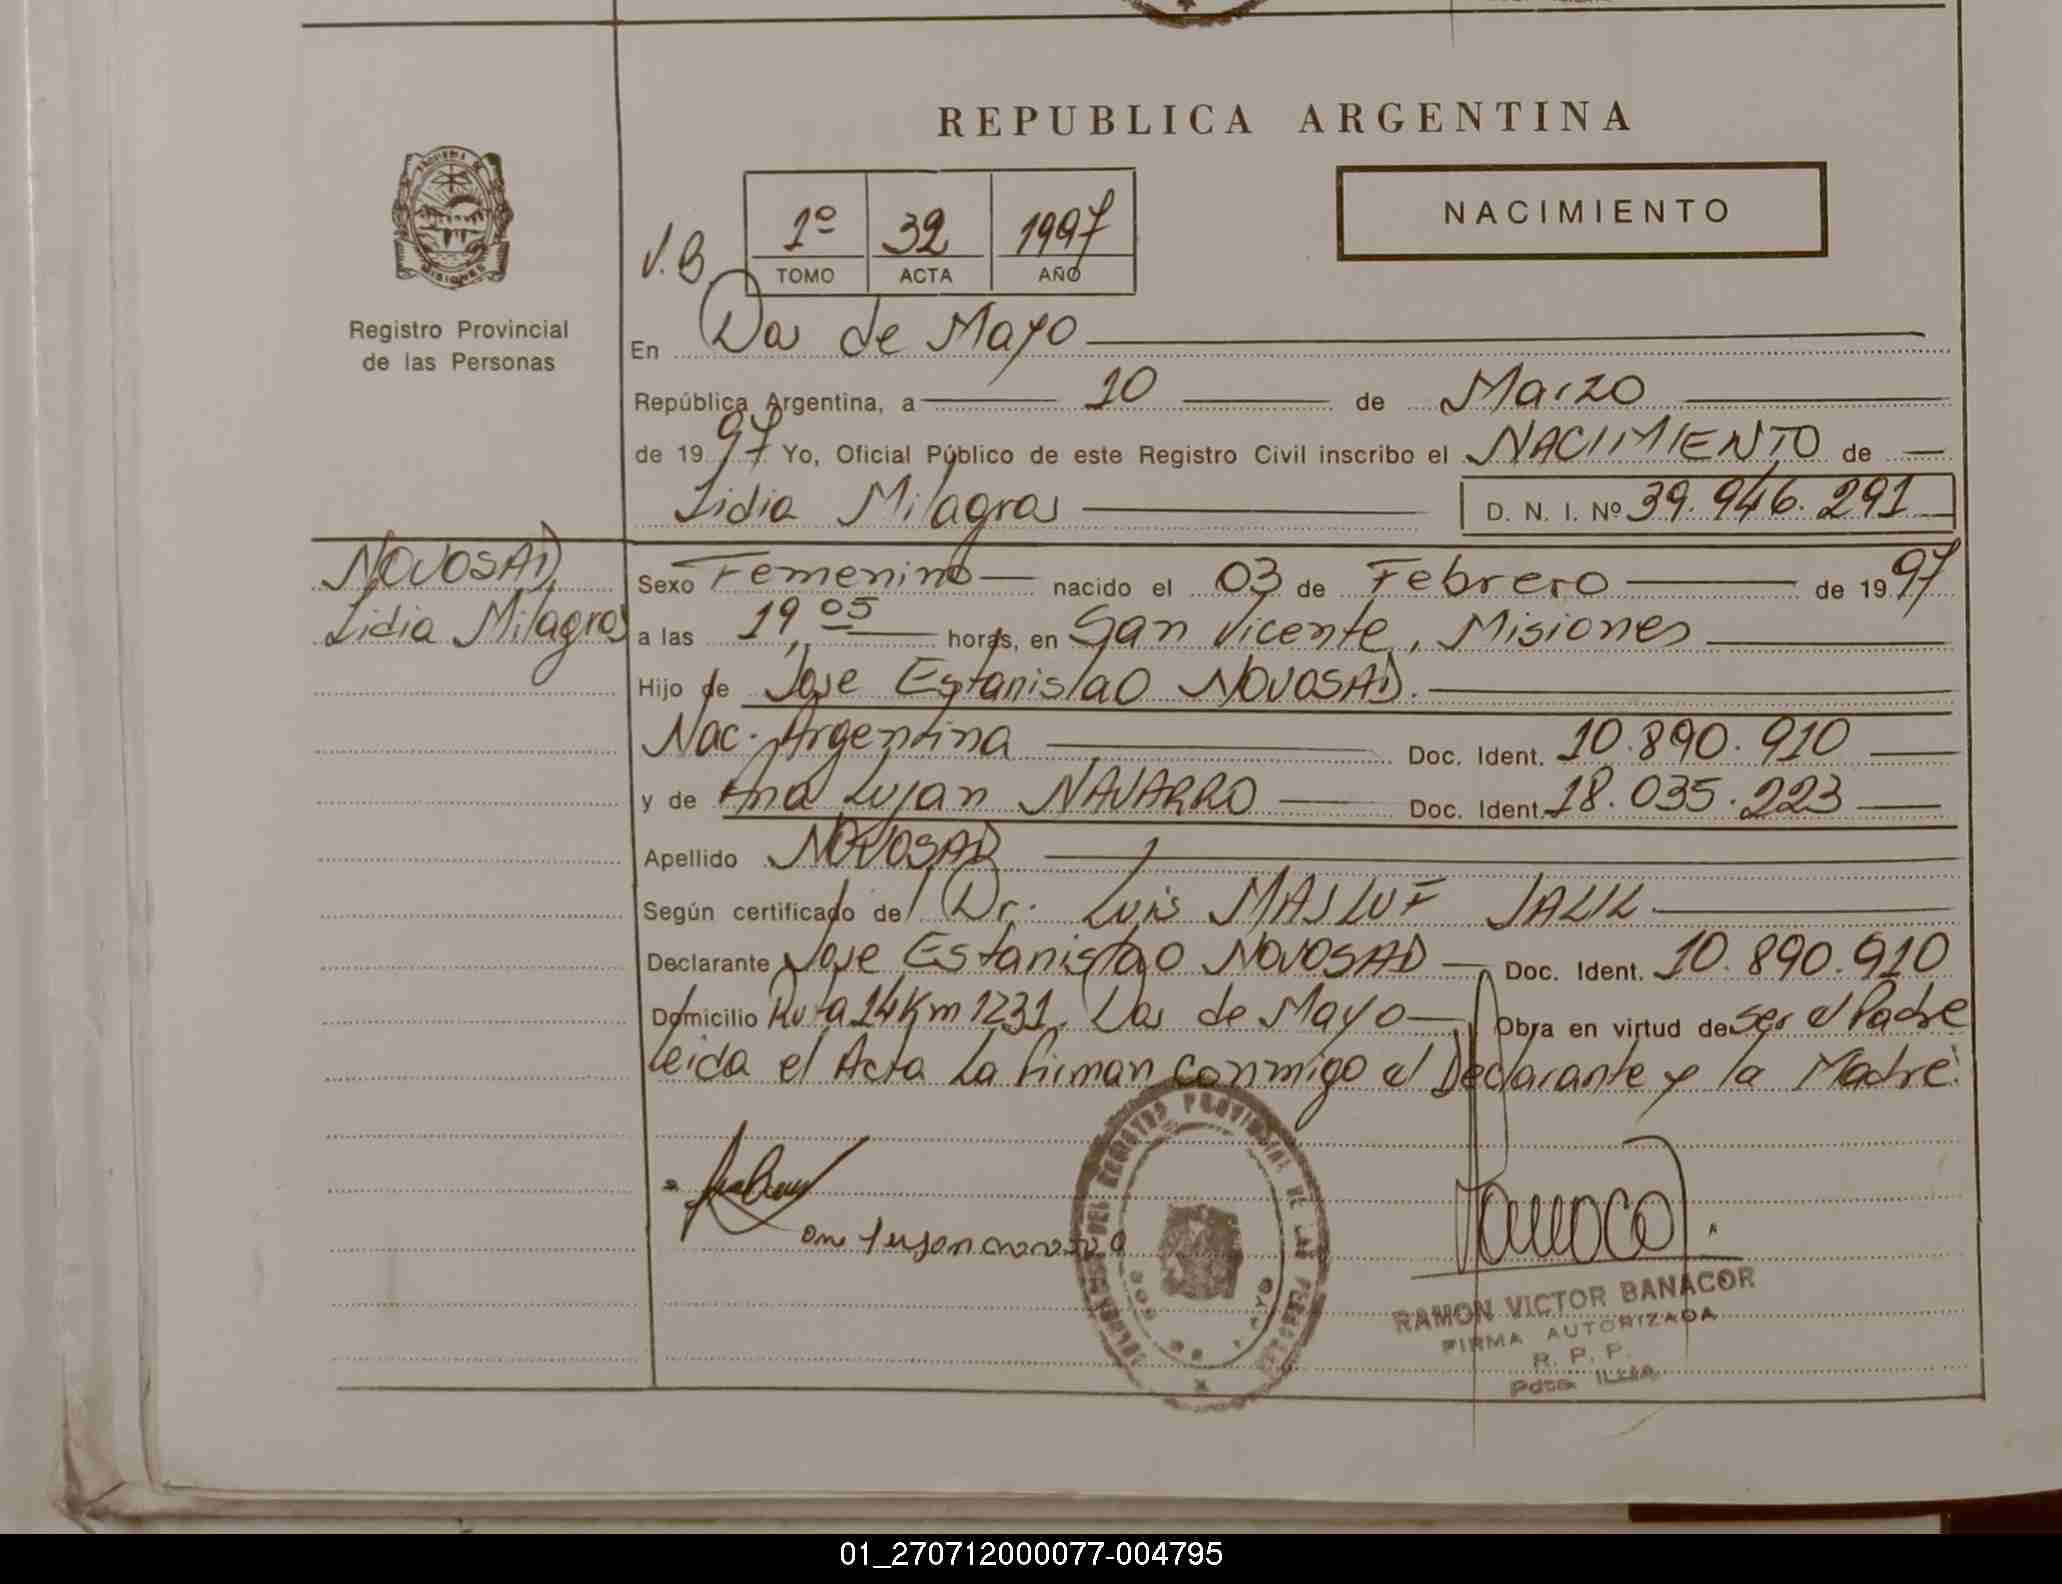 REPUBLICA ARGENTINA
NACIMIENTO
PROVINCIA DE
MISIONES
Registro Provincial
de las Personas
V.B.
1º 32 1997
TOMO ACTA AÑO
En Dos de Mayo
República Argentina, a 10 de Marzo
de 1997 Yo, Oficial Público de este Registro Civil inscribo el NACIMIENTO de
Lidia Milagros D. N. I. Nº 39.946.291
NOVOSAD
Lidia Milagros
Sexo Femenino nacido el 03 de Febrero de 1997
a las 19,05 horas, en San Vicente, Misiones
Hijo de Jose Estanislao NOVOSAD.
Nac. Argentina Doc. Ident. 10.890.910
y de Ana Lujan NAVARRO Doc. Ident. 18.035.223
Apellido NOVOSAD
Según certificado del Dr. Luis MASLUF JALIL
Declarante Jose Estanislao NOVOSAD Doc. Ident. 10.890.910
Domicilio Ruta 14 Km 1231. Dos de Mayo Obra en virtud de ser el Padre
leida el Acta La firman conmigo el Declarante y la Madre.
DEL REGISTRO PROVINCIAL DE LAS PERSONAS
DOS DE MAYO
RAMON VICTOR BANACOR
FIRMA AUTORIZADA
R. P. P.
01_270712000077-004795